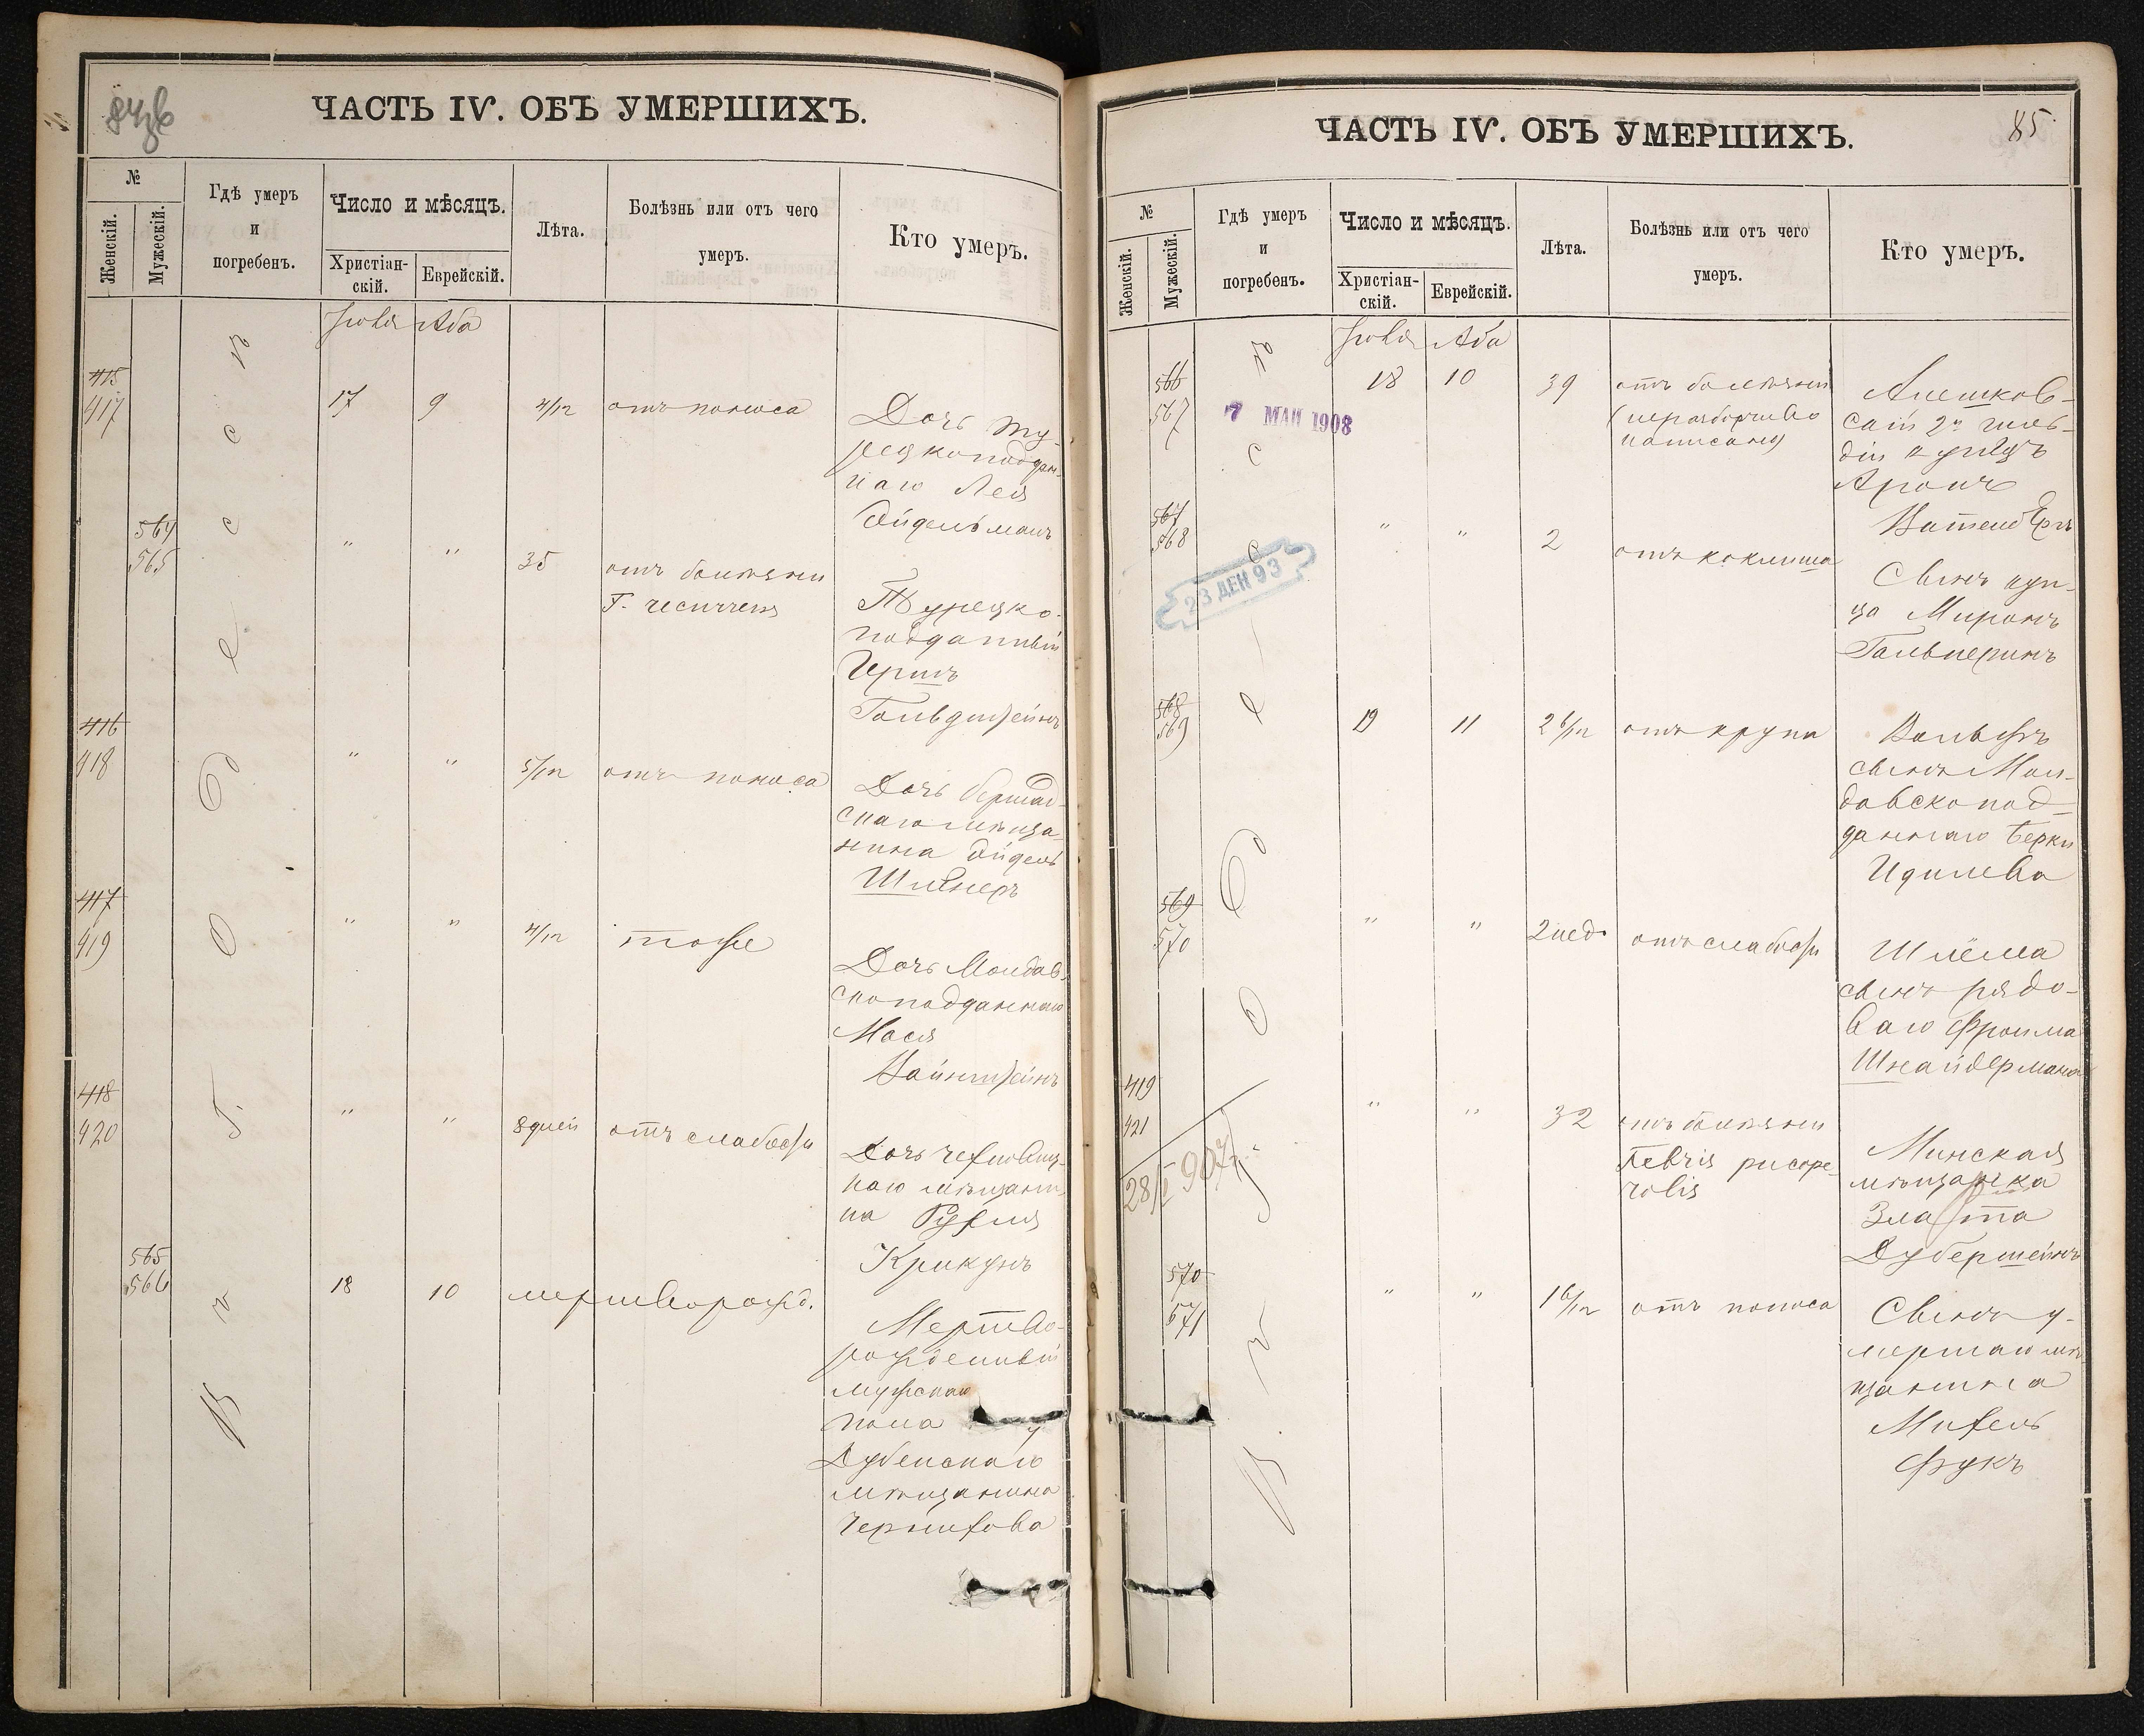 ЧАСТЬ IV. ОБЪ УМЕРШИХЪ.
№
Женскій.
Мужескій.
Гдѣ умеръ
и
погребенъ.
Число и мѣсяцъ.
Христіан-
скій.
Еврейскій.
Лѣта.
Болѣзнь или отъ чего
умеръ.
Кто умеръ.
Въ г. Одессѣ
Іюля Аба
415
417
17 9 4/12 отъ поноса
Дочь ту-
рецкоподдан-
наго Лея
Эйдельманъ
564
565
" " 35 отъ болѣзни
Турецко-
подданный
Гершъ
Гольдштейнъ
416
418
" " 5/12 отъ поноса
Дочь бершад-
скаго мѣща-
нина Эйдель
417
419
" " 4/12 тоже
Дочь Молдав-
скоподданнаго
Мася
Вайнштейнъ
418
420
" " 8 дней отъ слабости
на Рухля
Крикунъ
565
566
18 10 мертворожд.
Мертво-
рожденный
мужскаго
пола у
Дубенскаго
мѣщанина
Черняхова
ЧАСТЬ IV. ОБЪ УМЕРШИХЪ.
85
№
Женскій.
Мужескій.
Гдѣ умеръ
и
погребенъ.
Число и мѣсяцъ.
Христіан-
скій.
Еврейскій.
Лѣта.
Болѣзнь или отъ чего
умеръ.
Кто умеръ.
Въ г. Одессѣ
Іюля Аба
566
567
18 10 39 отъ болѣзни
(неразборчиво
написана)
Алешков-
скій 2й гиль-
діи купецъ
Аронъ
7 МАЙ 1908
567
568
" " 2 отъ коклюша
Сынъ куп-
ца Миронъ
Гальперинъ
23 ДЕК 93
568
569
19 11 2 6/12 отъ крупа
Вольфъ
сынъ Мол-
давскопод-
даннаго Берки
Идилева
569
570
" " 2 нед. отъ слабости
Шлёма
сынъ рядо-
ваго Фроима
Шнайдермана
419
421
28/I 907г.
" " 32 отъ болѣзни
Минская
мѣщанка
Злата
Дуберштейнъ
570
571
" " 1 6/12 отъ поноса
Сынъ у-
мершаго мѣ-
щанина
Михель
Фукъ